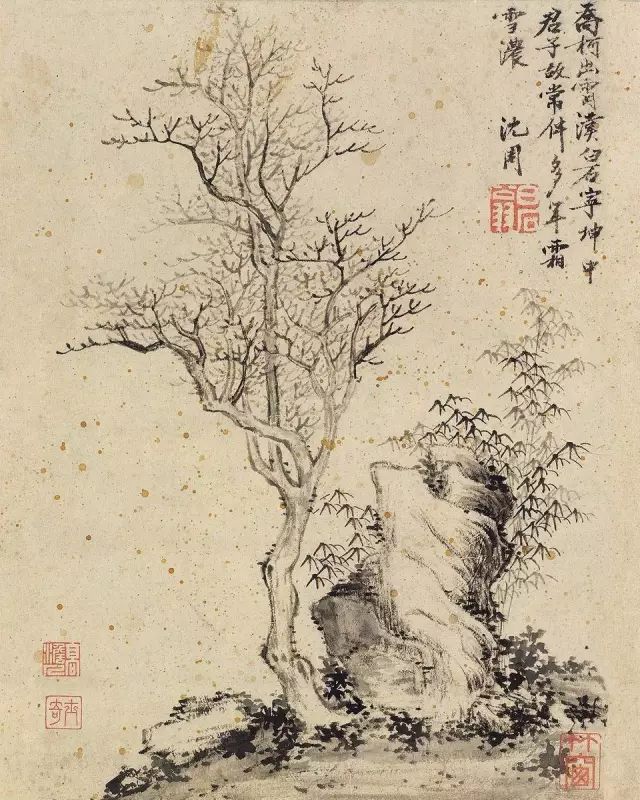 喬柯出霄漢白石寧坤中
君子故常伴多年霜
雪濃 沈周